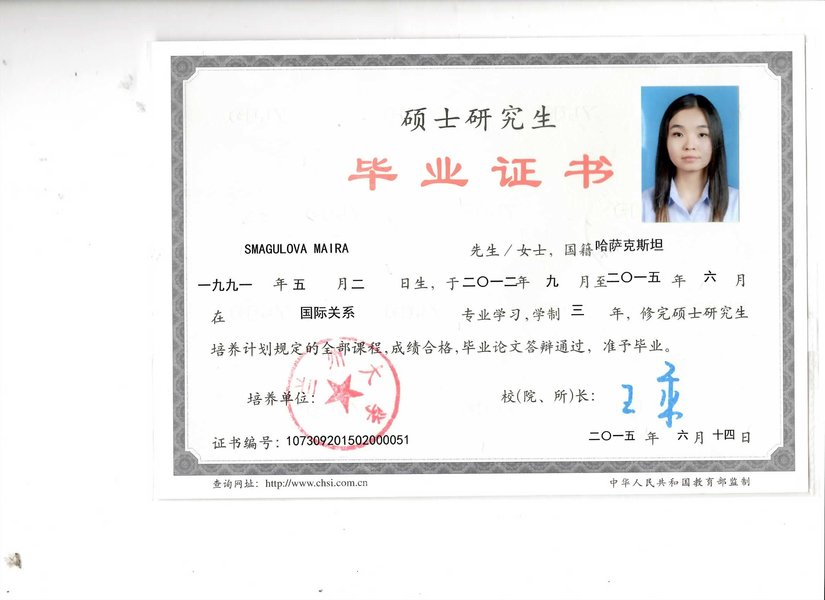 硕士研究生
毕业证书
SMAGULOVA MAIRA 先生／女士，国籍哈萨克斯坦
一九九一 年 五 月 二 日生，于二〇一二年 九 月至二〇一五 年 六 月
在 国际关系 专业学习，学制 三 年，修完硕士研究生
培养计划规定的全部课程，成绩合格，毕业论文答辩通过，准予毕业。
培养单位： 校(院、所)长：
证书编号：107309201502000051 二〇一五 年 六 月 十四 日
查询网址：http://www.chsi.com.cn 中华人民共和国教育部监制